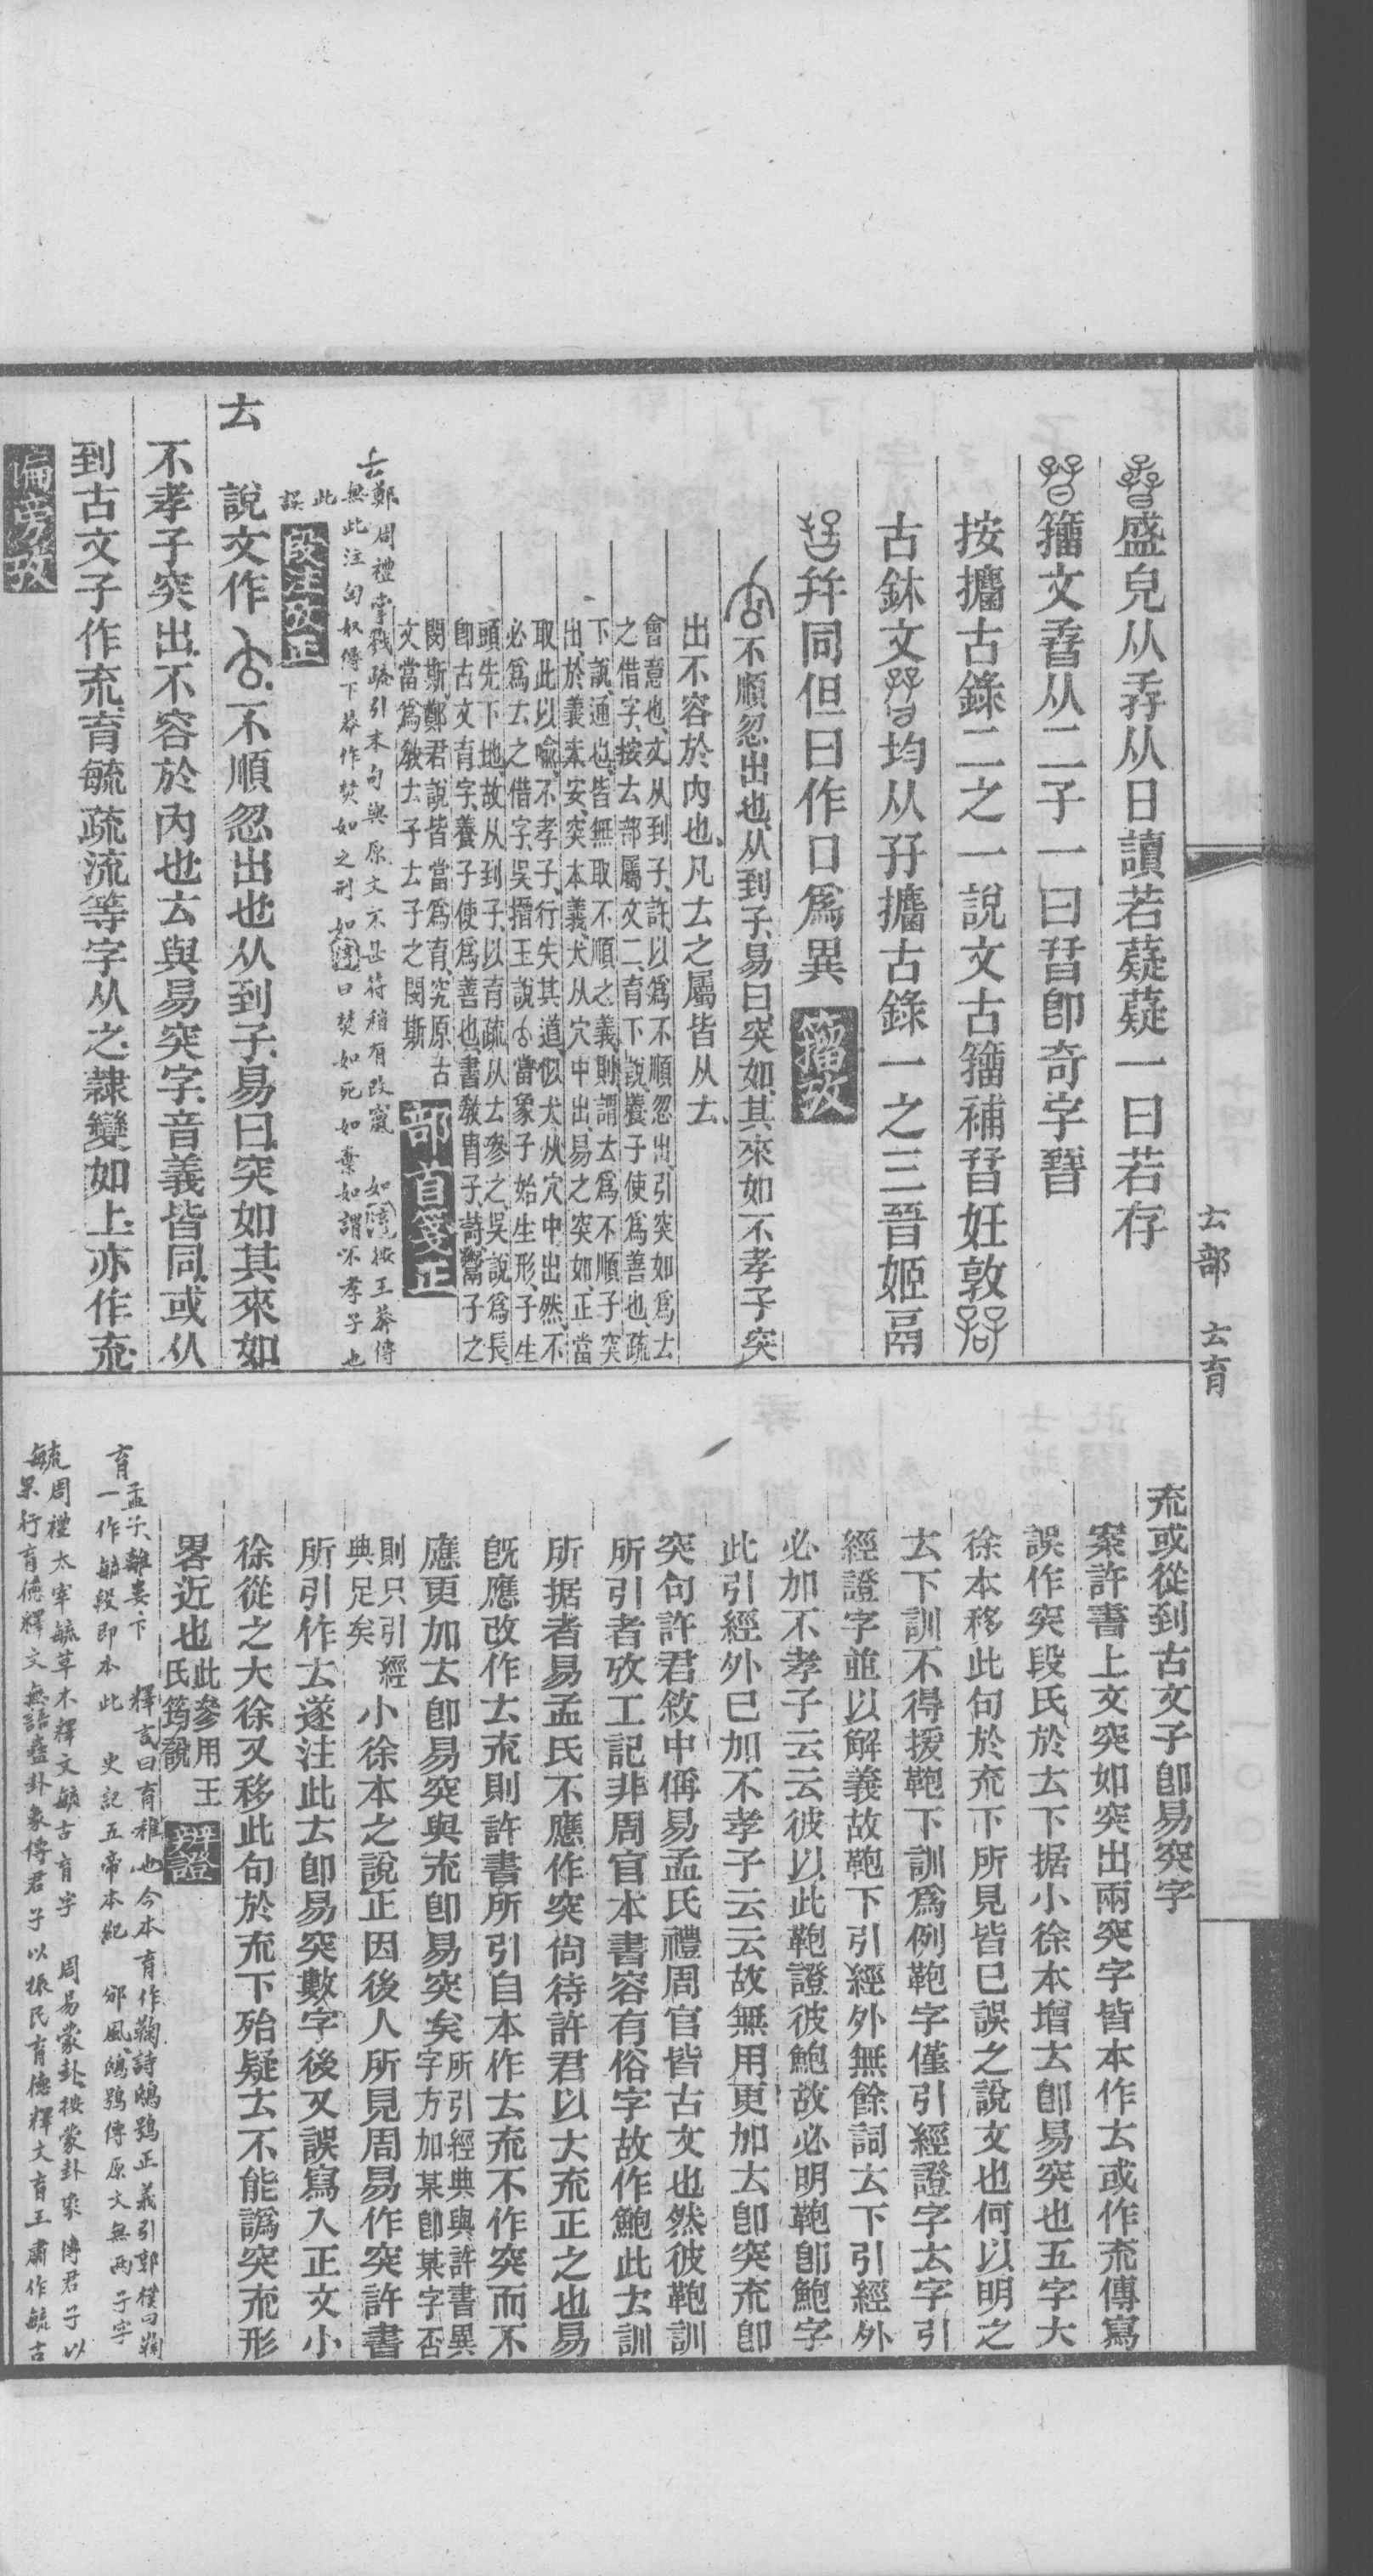 盛皃从孨从日讀若薿薿一曰若存
籒文𣊟从二子一曰㬜卽奇字㬜
按攟古錄二之一說文古籒補㬜妊敦
古鉥文均从孖攟古錄一之三晉姬鬲
幷同但曰作口爲異 籒攷
不順忽出也、从到子、易曰、突如、其來如、不孝子突
出不容於內也、凡𠫓之屬皆从𠫓、
會意也、文从到子、許以爲不順忽出、引突如爲𠫓
之借字、按𠫓部屬文二、育下說、養子使爲善也、疏
下說、通也、皆無取不順之義、則謂𠫓爲不順子突
出、於義未安、突本義、犬从穴中出、易之突如、正當
取此以喩、不孝子、行失其道、似犬从穴中出然、不
必爲𠫓之借字、吳搢王說、當象子始生形、子生
頭先下地、故从到子、以育疏从𠫓參之、吳說爲長
卽古文育字、養子使爲善也、書敎胄子、詩鬻子之
閔斯、鄭君說皆當爲育、究原古
文當爲敎𠫓子𠫓子之閔斯 部首箋正
𠫓鄭周禮掌戮疏引末句與原文不甚符稍有改竄 如淳按王莽傳
無此注匈奴傳下莽作焚如之刑如淳曰焚如死如棄如謂不孝子也
此誤 段注攷正
𠫓 說文作 不順忽出也从到子、易曰、突如其來如
不孝子突出、不容於內也𠫓與易突字、音義皆同、或从
到古文子作㐬、育毓疏流等字从之、隸變如上、亦作㐬
偏旁攷
㐬或從到古文子卽易突字
案許書上文突如突出兩突字皆本作𠫓或作㐬傳寫
誤作突段氏於𠫓下据小徐本增𠫓卽易突也五字大
徐本移此句於㐬下所見皆已誤之說文也何以明之
𠫓下訓不得援鞄下訓爲例鞄字僅引經證字𠫓字引
經證字並以解義故鞄下引經外無餘詞𠫓下引經外
必加不孝子云云彼以此鞄證彼鮑故必明鞄卽鮑字
此引經外已加不孝子云云故無用更加𠫓卽突㐬卽
突句許君敘中偁易孟氏禮周官皆古文也然彼鞄訓
所引者攷工記非周官本書容有俗字故作鮑此𠫓訓
所据者易孟氏不應作突尙待許君以𠫓㐬正之也易
旣應改作𠫓㐬則許書所引自本作𠫓㐬不作突而不
應更加𠫓卽易突與㐬卽易突矣所引經典與許書異字方加某卽某字否
則只引經典足矣 小徐本之說正因後人所見周易作突許書
所引作𠫓遂注此𠫓卽易突數字後又誤寫入正文小
徐從之大徐又移此句於㐬下殆疑𠫓不能譌突㐬形
畧近也此參用王氏筠說 辨證
育孟子離婁下 釋言曰育稚也今本育作鞠詩鴟鴞正義引郭樸曰鞠
育一作毓段卽本此 史記五帝本紀 邠風鴟鴞傳原文無兩子字
毓周禮太宰毓草木釋文毓古育字 周易蒙卦按蒙卦象傳君子以
每果行育德釋文無語蠱卦象傳君子以振民育德釋文育王肅作毓古
𠫓部 𠫓育